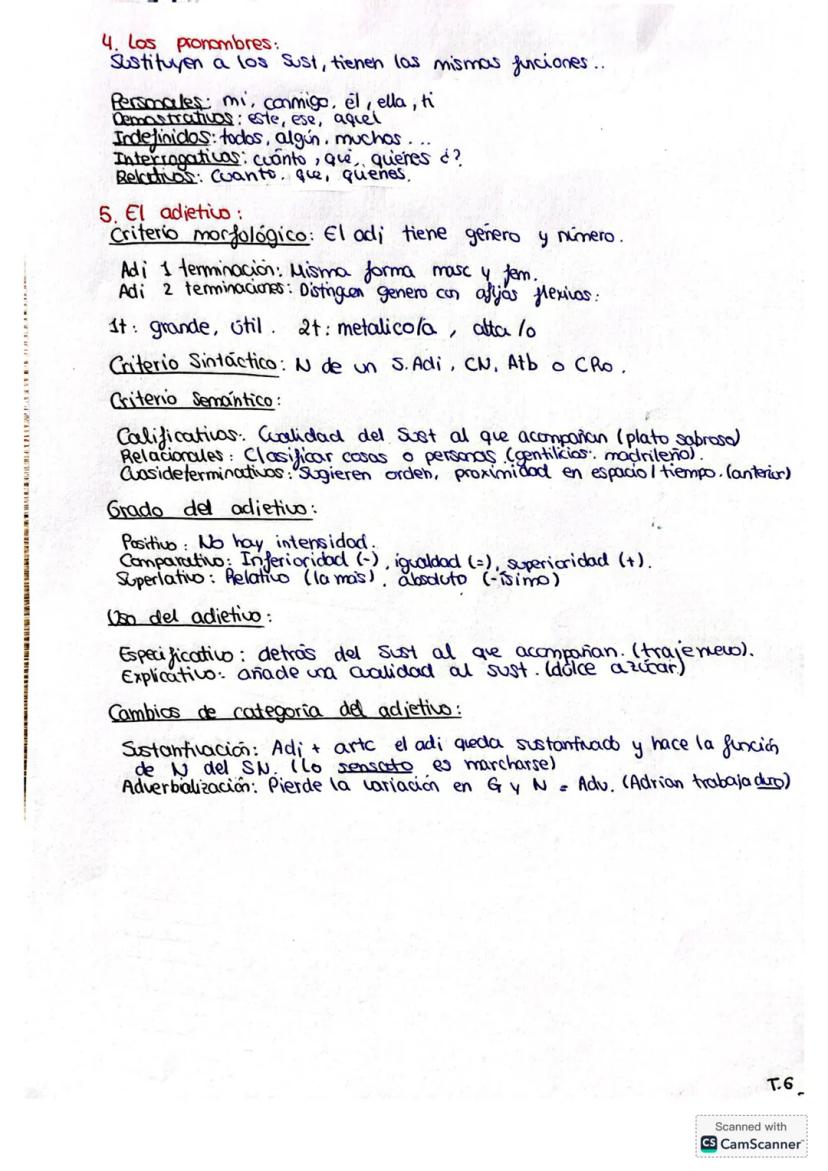 4. Los pronombres:
Sustituyen a los Sust, tienen las mismas funciones..
Personales: mi, conmigo, él, ella, ti
Demostrativos: este, ese, aquel
Indefinidos: todos, algún, muchos...
Interrogativos: cuánto, qué, quiénes ¿?
Relativos: Cuanto, que, quienes.
5. El adjetivo:
Criterio morfológico: El adj tiene género y número.
Adj 1 terminación: Misma forma masc y fem.
Adj 2 terminaciones: Distinguen genero con afijos flexivos:
1t: grande, útil. 2t: metalico/a, alta/o
Criterio Sintáctico: N de un S.Adj, CN, Atb o CRo.
Criterio Semántico:
Calificativos: Cualidad del Sust al que acompañan (plato sabroso)
Relacionales: Clasificar cosas o personas (gentilicios: madrileño).
Cuasideterminativos: Sugieren orden, proximidad en espacio/tiempo. (anterior)
Grado del adjetivo:
Positivo: No hay intensidad.
Comparativo: Inferioridad (-), igualdad (=), superioridad (+).
Superlativo: Relativo (la más), absoluto (-ísimo)
Uso del adjetivo:
Especificativo: detrás del Sust al que acompañan. (traje nuevo).
Explicativo: añade una cualidad al sust. (dulce azúcar)
Cambios de categoría del adjetivo:
Sustantivación: Adj + artc el adj queda sustantivado y hace la función
de N del SN. (Lo sensato es marcharse)
Adverbialización: Pierde la variación en G y N = Adv. (Adrian trabaja duro)
T.6
Scanned with
CS CamScanner